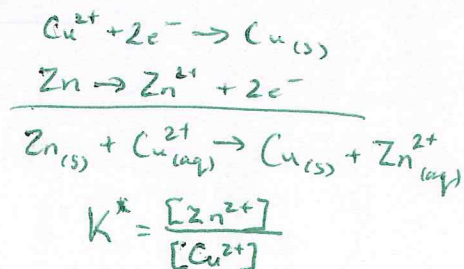 Cu²⁺ + 2e⁻ → Cu(s)
Zn → Zn²⁺ + 2e⁻
Zn(s) + Cu²⁺(aq) → Cu(s) + Zn²⁺(aq)
K* = [Zn²⁺] / [Cu²⁺]